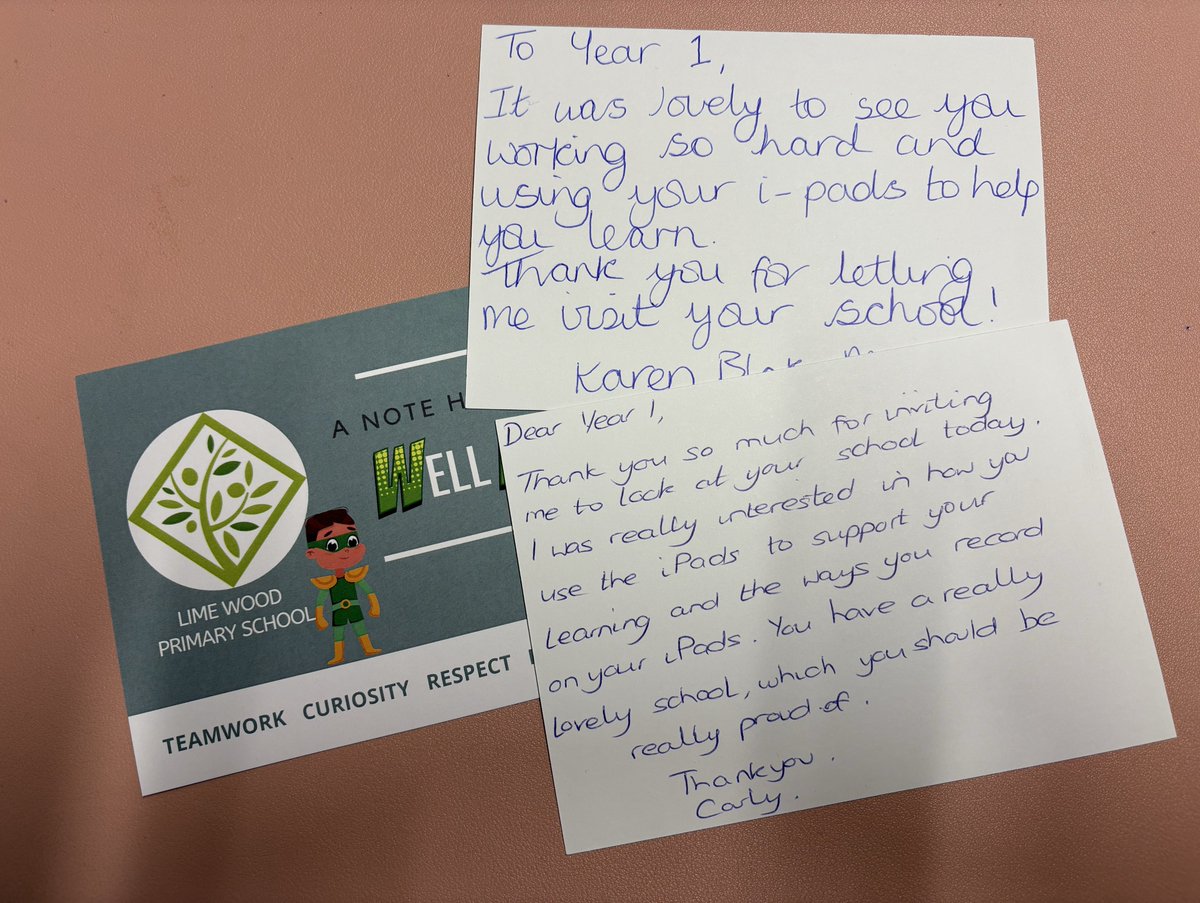 To Year 1,
It was lovely to see you
working so hard and
using your i-pads to help
you learn.
Thank you for letting
me visit your school!
Karen
A NOTE
WELL
LIME WOOD
PRIMARY SCHOOL
TEAMWORK CURIOSITY RESPECT
Dear Year 1,
Thank you so much for inviting
me to look at your school today.
I was really interested in how you
use the iPads to support your
Learning and the ways you record
on your iPads. You have a really
lovely school, which you should be
really proud of.
Thankyou.
Carly.